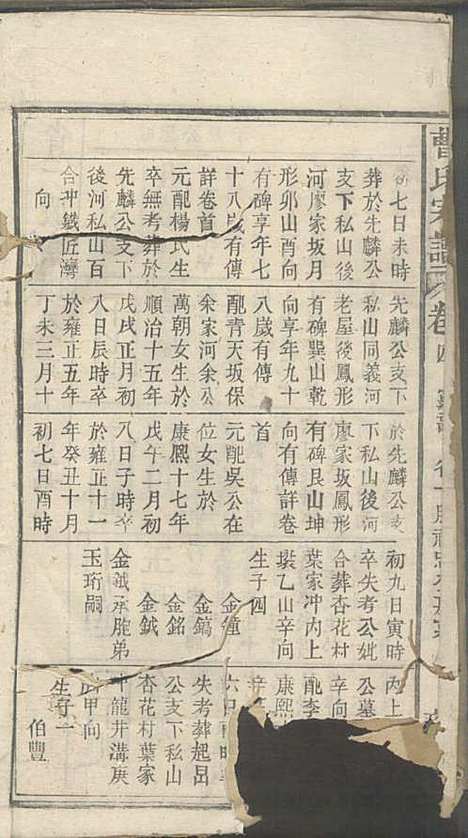 曹氏宗譜
卷四
初七日未時
葬於先麟公
支下私山後
河廖家坂月
形卯山酉向
有碑享年七
十八歲有傳
詳卷首
元配楊氏生
卒無考葬於
先麟公支下
後河私山百
合沖鐵匠灣
向
先麟公支下
私山同義河
老屋後鳳形
有碑巽山乾
向享年九十
八歲有傳
配青天坂保
余家河余公
萬朝女生於
順治十五年
戊戌正月初
八日辰時卒
於雍正五年
丁未三月十
於先麟公支
下私山後河
廖家坂鳳形
有碑艮山坤
向有傳詳卷
首
元配吳公在
位女生於
康熙十七年
戊午二月初
八日子時卒
於雍正十一
年癸丑十月
初七日酉時
初九日寅時
卒失考公妣
合葬杏花村
葉家沖內上
塅乙山辛向
生子四
金鐘
金鎬
金銘
金鉞
金鉞承胞弟
玉珩嗣
內上
公墓
辛向
配李
康熙
六日
失考葬起呂
公支下私山
杏花村葉家
龍井溝庚
甲向
生子一
伯豐